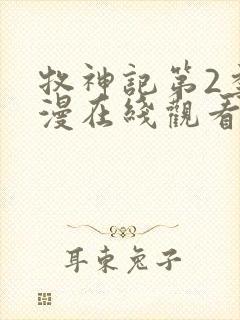 牧神記第2季
漫在綫觀看
耳東兔子